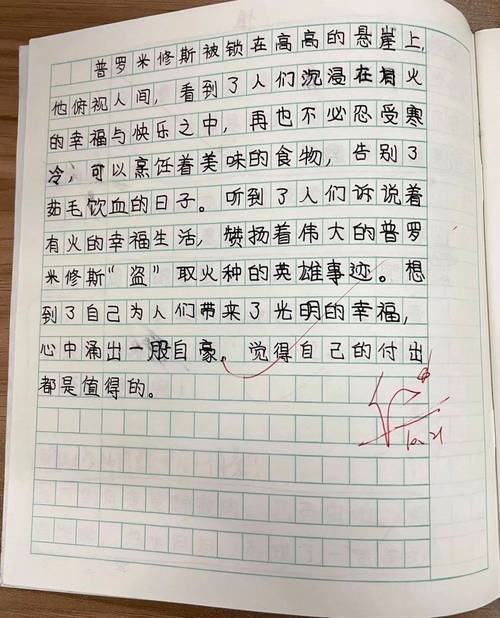 普罗米修斯被锁在高高的悬崖上,
他俯视人间，看到了人们沉浸在有火
的幸福与快乐之中，再也不必忍受寒
冷，可以烹饪着美味的食物，告别了
茹毛饮血的日子。听到了人们诉说着
有火的幸福生活，赞扬着伟大的普罗
米修斯“盗”取火种的英雄事迹。想
到了自己为人们带来了光明的幸福，
心中涌出一股自豪。觉得自己的付出
都是值得的。
10.21